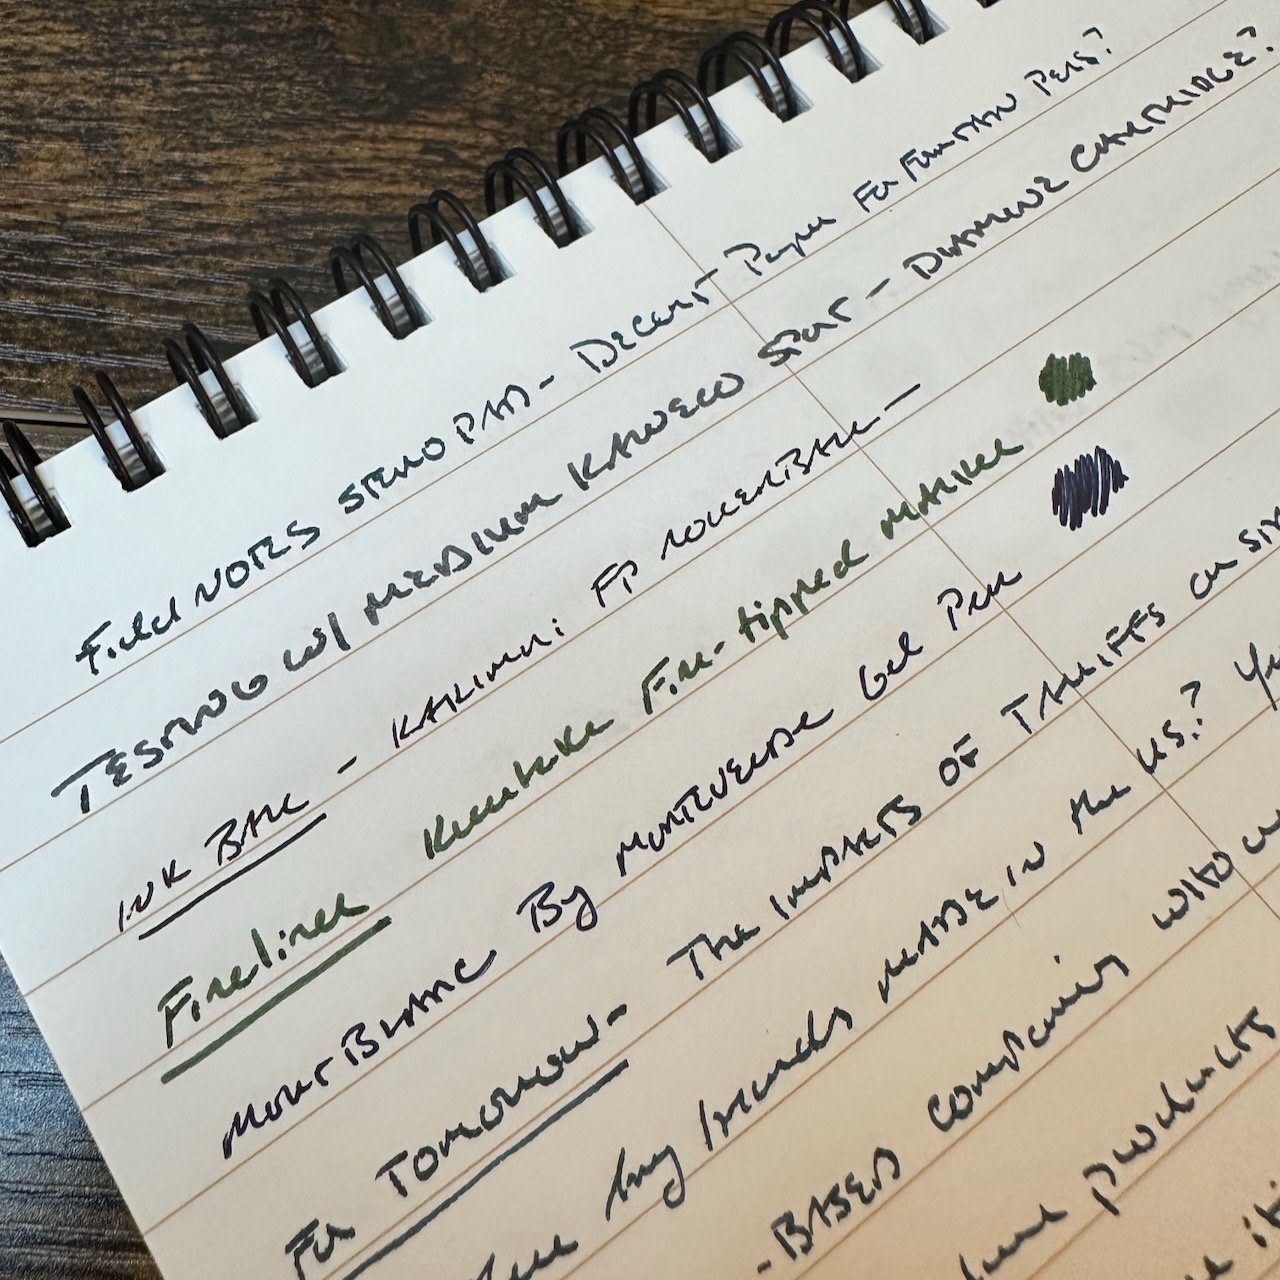 Field NOTES STENO PAD - DECENT Paper For Fountain Pens?
TESTING W/ MEDIUM KAWECO SPORT - DIAMINE CARTRIDGE?
INK BALL - KAKIMORI FP ROLLERBALL -
Fireliner Kuretake Fine-tipped Marker
MONTBLANC By MONTEVERDE Gel Pen
For TOMORROW - The IMPACTS OF TARIFFS on
any brands MADE IN the US?
-BASED companies who
products